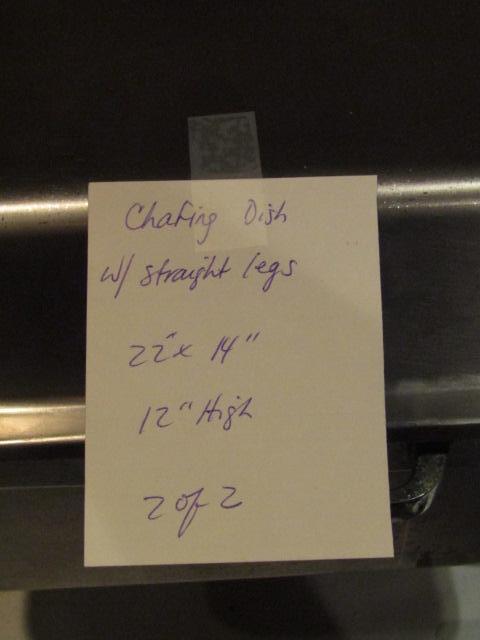 Chafing Dish
w/ straight legs
22" x 14"
12" High
2 of 2